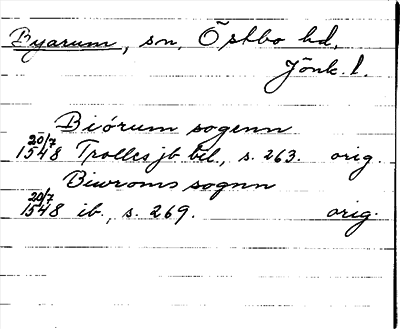 Byarum, sn, Östbo hd,
Jönk. l.
Biórum sogenn
20/7
1548 Trolles jb bil., s. 263. orig.
Biwroms sognn
20/7
1548 ib., s. 269. orig.